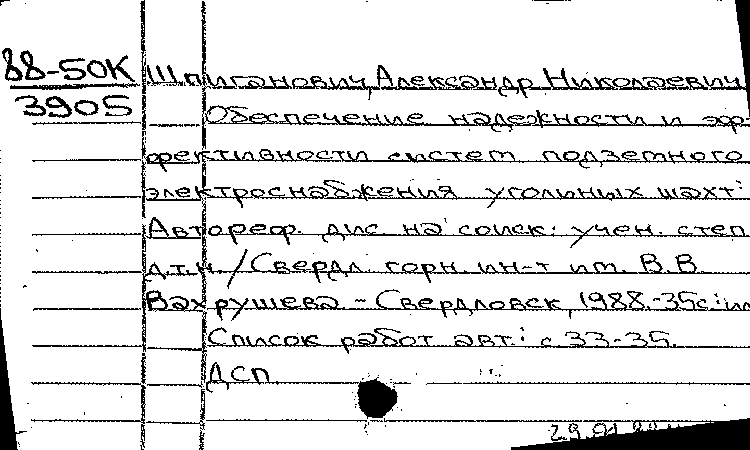 88-50К Шпиганович, Александр Николаевич
3905
Обеспечение надежности и эф-
фективности систем подземного
электроснабжения угольных шахт:
Автореф. дис. на соиск. учен. степ.
д.т.н. / Свердл. горн. ин-т им. В.В.
Вахрушева. - Свердловск, 1988. - 35с.: ил
Список работ авт.: с. 33-35.
ДСП